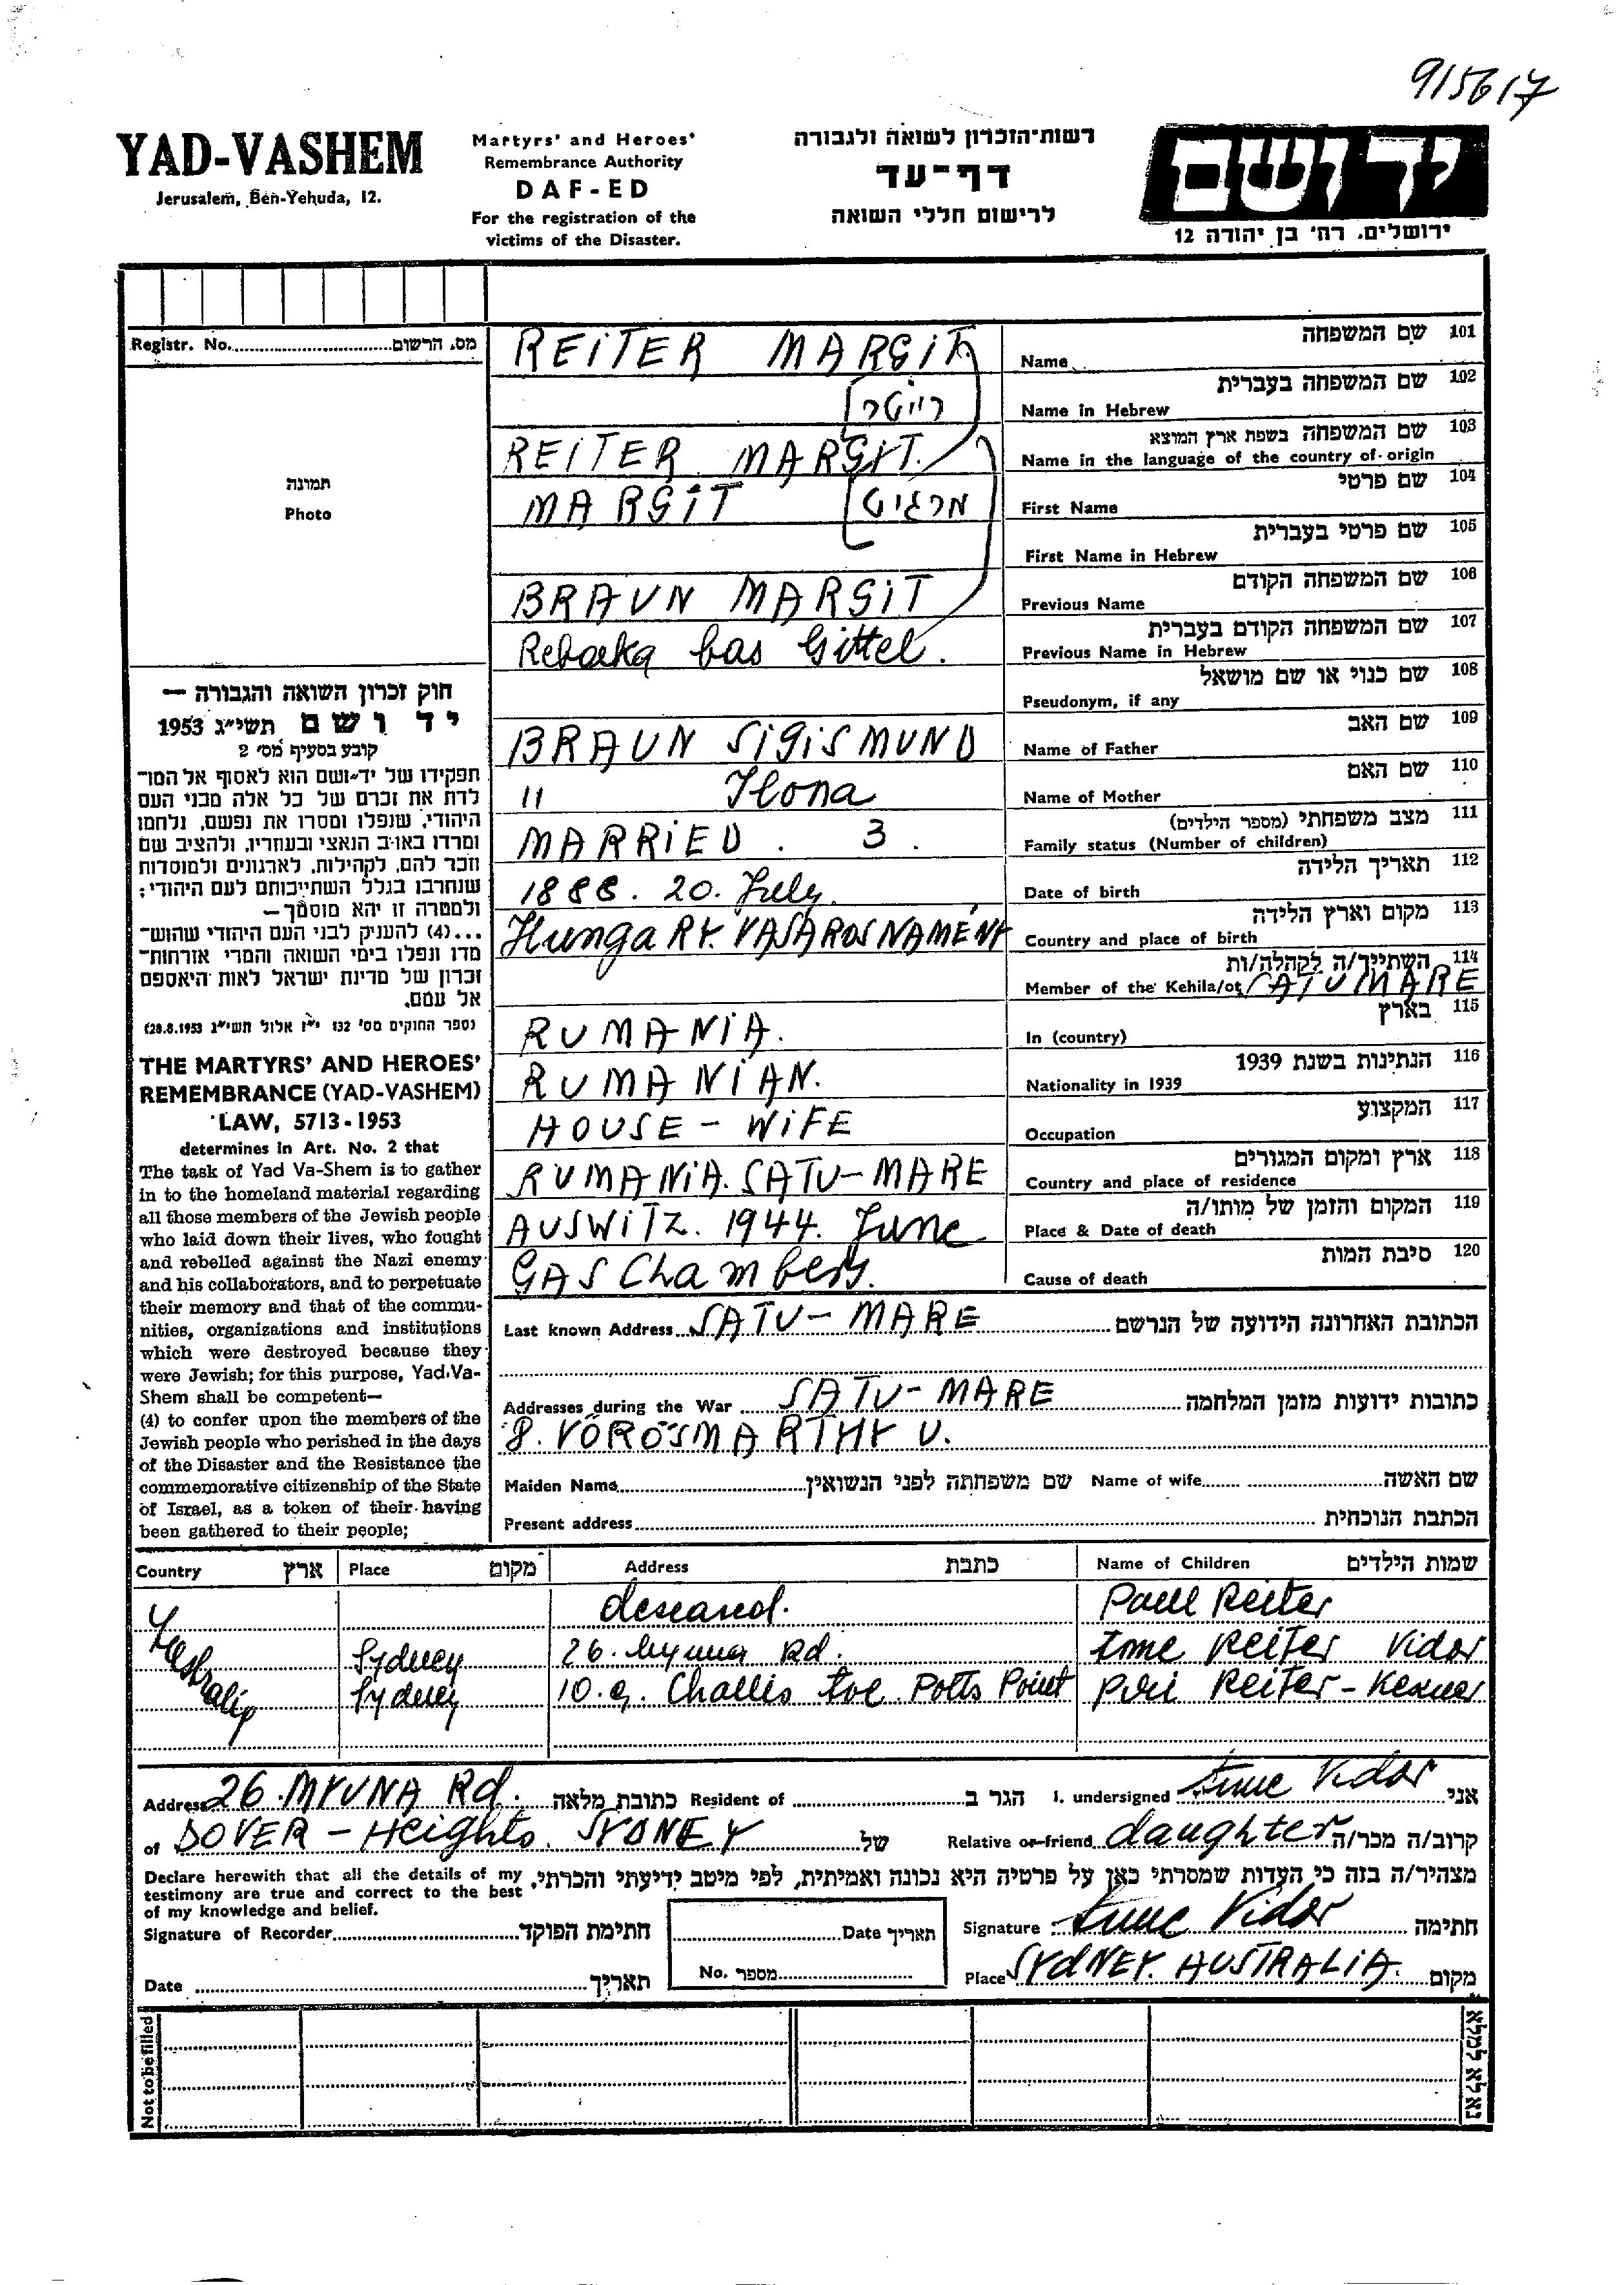 915617
YAD-VASHEM
Jerusalem, Ben-Yehuda, 12.
Martyrs' and Heroes'
Remembrance Authority
DAF-ED
For the registration of the
victims of the Disaster.
רשות-הזכרון לשואה ולגבורה
דף-עד
לרישום חללי השואה
יד ושם
ירושלים, רח' בן יהודה 12
Registr. No. מס. הרשום
תמונה
Photo
REITER MARGIT
Name שם המשפחה 101
רייטר
Name in Hebrew שם המשפחה בעברית 102
REITER MARGIT.
שם המשפחה בשפת ארץ המוצא 103
Name in the language of the country of origin
MARGIT מרגיט
First Name שם פרטי 104
First Name in Hebrew שם פרטי בעברית 105
BRAUN MARGIT
Previous Name שם המשפחה הקודם 106
bas Gittel.
Previous Name in Hebrew שם המשפחה הקודם בעברית 107
Pseudonym, if any שם כנוי או שם מושאל 108
BRAUN SIGISMUND
Name of Father שם האב 109
11 Ilona
Name of Mother שם האם 110
MARRIED. 3.
Family status (Number of children) מצב משפחתי (מספר הילדים) 111
1888. 20. July.
Date of birth תאריך הלידה 112
HungaRY. VASAROSNAMENY
Country and place of birth מקום וארץ הלידה 113
השתייך/ה לקהלה/ות 114
Member of the Kehila/ot SATUMARE
RUMANIA.
In (country) בארץ 115
RUMANIAN.
Nationality in 1939 הנתינות בשנת 1939 116
HOUSE-WIFE
Occupation המקצוע 117
RUMANIA. SATU-MARE
Country and place of residence ארץ ומקום המגורים 118
AUSWITZ. 1944. June
Place & Date of death המקום והזמן של מותו/ה 119
GAS Chambers.
Cause of death סיבת המות 120
חוק זכרון השואה והגבורה —
יד ושם תשי"ג 1953
קובע בסעיף מס' 2
תפקידו של יד-ושם הוא לאסוף אל המו־
לדת את זכרם של כל אלה מבני העם
היהודי, שנפלו ומסרו את נפשם, נלחמו
ומרדו באויב הנאצי ובעוזריו, ולהציב שם
וזכר להם, לקהילות, לארגונים ולמוסדות
שנחרבו בגלל השתייכותם לעם היהודי;
ולמטרה זו יהא מוסמך—
...(4) להעניק לבני העם היהודי שהוש־
מדו ונפלו בימי השואה והמרי אזרחות־
זכרון של מדינת ישראל לאות היאספם
אל עמם.
(ספר החוקים מס' 132 י"ז אלול תשי"ג 28.8.1953)
THE MARTYRS' AND HEROES'
REMEMBRANCE (YAD-VASHEM)
LAW, 5713-1953
determines in Art. No. 2 that
The task of Yad Va-Shem is to gather
in to the homeland material regarding
all those members of the Jewish people
who laid down their lives, who fought
and rebelled against the Nazi enemy
and his collaborators, and to perpetuate
their memory and that of the commu-
nities, organizations and institutions
which were destroyed because they
were Jewish; for this purpose, Yad Va-
Shem shall be competent—
(4) to confer upon the members of the
Jewish people who perished in the days
of the Disaster and the Resistance the
commemorative citizenship of the State
of Israel, as a token of their having
been gathered to their people;
Last known Address SATU-MARE הכתובת האחרונה הידועה של הנרשם
Addresses during the War SATU-MARE כתובות ידועות מזמן המלחמה
8. VÖRÖSMARTHY U.
Maiden Name שם משפחתה לפני הנשואין Name of wife שם האשה
Present address הכתבת הנוכחית
Country ארץ Place מקום Address כתבת Name of Children שמות הילדים
deseased. Paul Reiter
Australia Sydney 26. Myuna Rd. Reiter Vidor
Sydney 10. Challis Ave. Potts Point Reiter-
Address 26. MYUNA Rd. כתובת מלאה Resident of הגר ב I. undersigned Vidor אני
of DOVER-Heights. SYDNEY של Relative or friend daughter קרוב/ה מכר/ה
Declare herewith that all the details of my
testimony are true and correct to the best
of my knowledge and belief.
מצהיר/ה בזה כי העדות שמסרתי כאן על פרטיה היא נכונה ואמיתית, לפי מיטב ידיעתי והכרתי.
Signature of Recorder חתימת הפוקד Date תאריך Signature Vidor חתימה
Date תאריך No. מספר Place SYDNEY. AUSTRALIA. מקום
Not to be filled
נא לא למלא